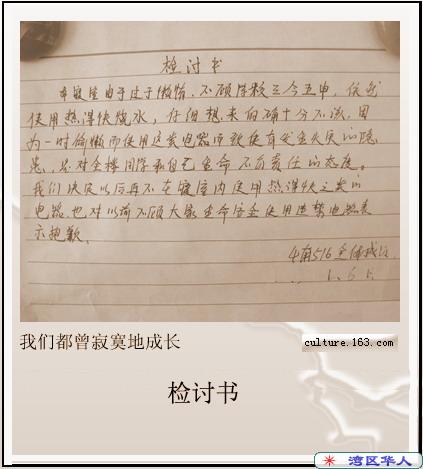 检讨书
本寝室由于过于懒惰，不顾学校三令五申，依然
使用热得快烧水，仔细想来的确十分不该，因
为一时偷懒而使用这类电器而致使有发生火灾的隐
患，是对全楼同学和自己生命不负责任的态度。
我们决定以后再不在寝室内使用热得快之类的
电器，也对以前不顾大家生命安全使用违禁电器表
示抱歉。
516全体成员
我们都曾寂寞地成长
culture.163.com
检讨书
湾区华人